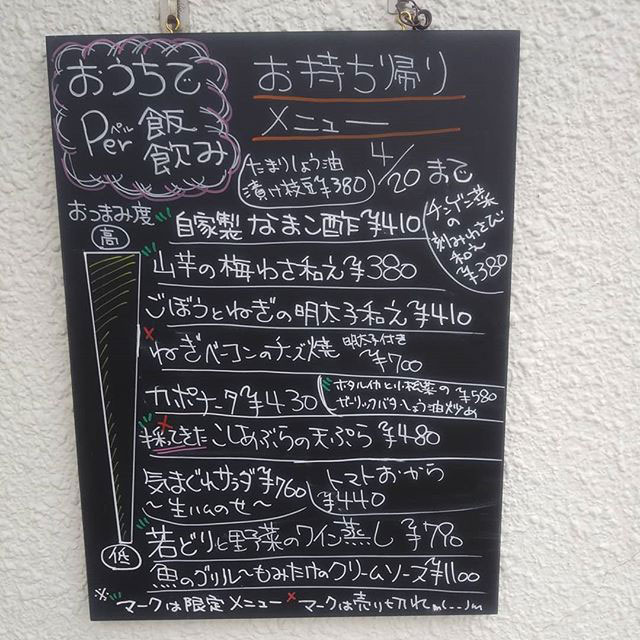 おうちで
Per ペル 飯
飲み
お持ち帰り
メニュー
4/20まで
たまりしょう油
漬け枝豆¥380
おつまみ度
高
自家製なまこ酢¥410
チンゲン菜
の
刻みわさび
和え
¥380
山芋の梅わさ和え¥380
ごぼうとねぎの明太子和え¥410
×ねぎベーコンのチーズ焼 明太子付き
¥700
カポナータ¥430
ホタルイカと小松菜の¥580
ガーリックバターしょう油炒め
×採ってきたこしあぶらの天ぷら¥480
気まぐれサラダ¥760
〜生ハムのせ〜
トマトおから
¥440
若どりと野菜のワイン蒸し¥790
魚のグリル〜もみたけのクリームソース¥1100
低
※〃マークは限定メニュー ×マークは売り切れm(__)m